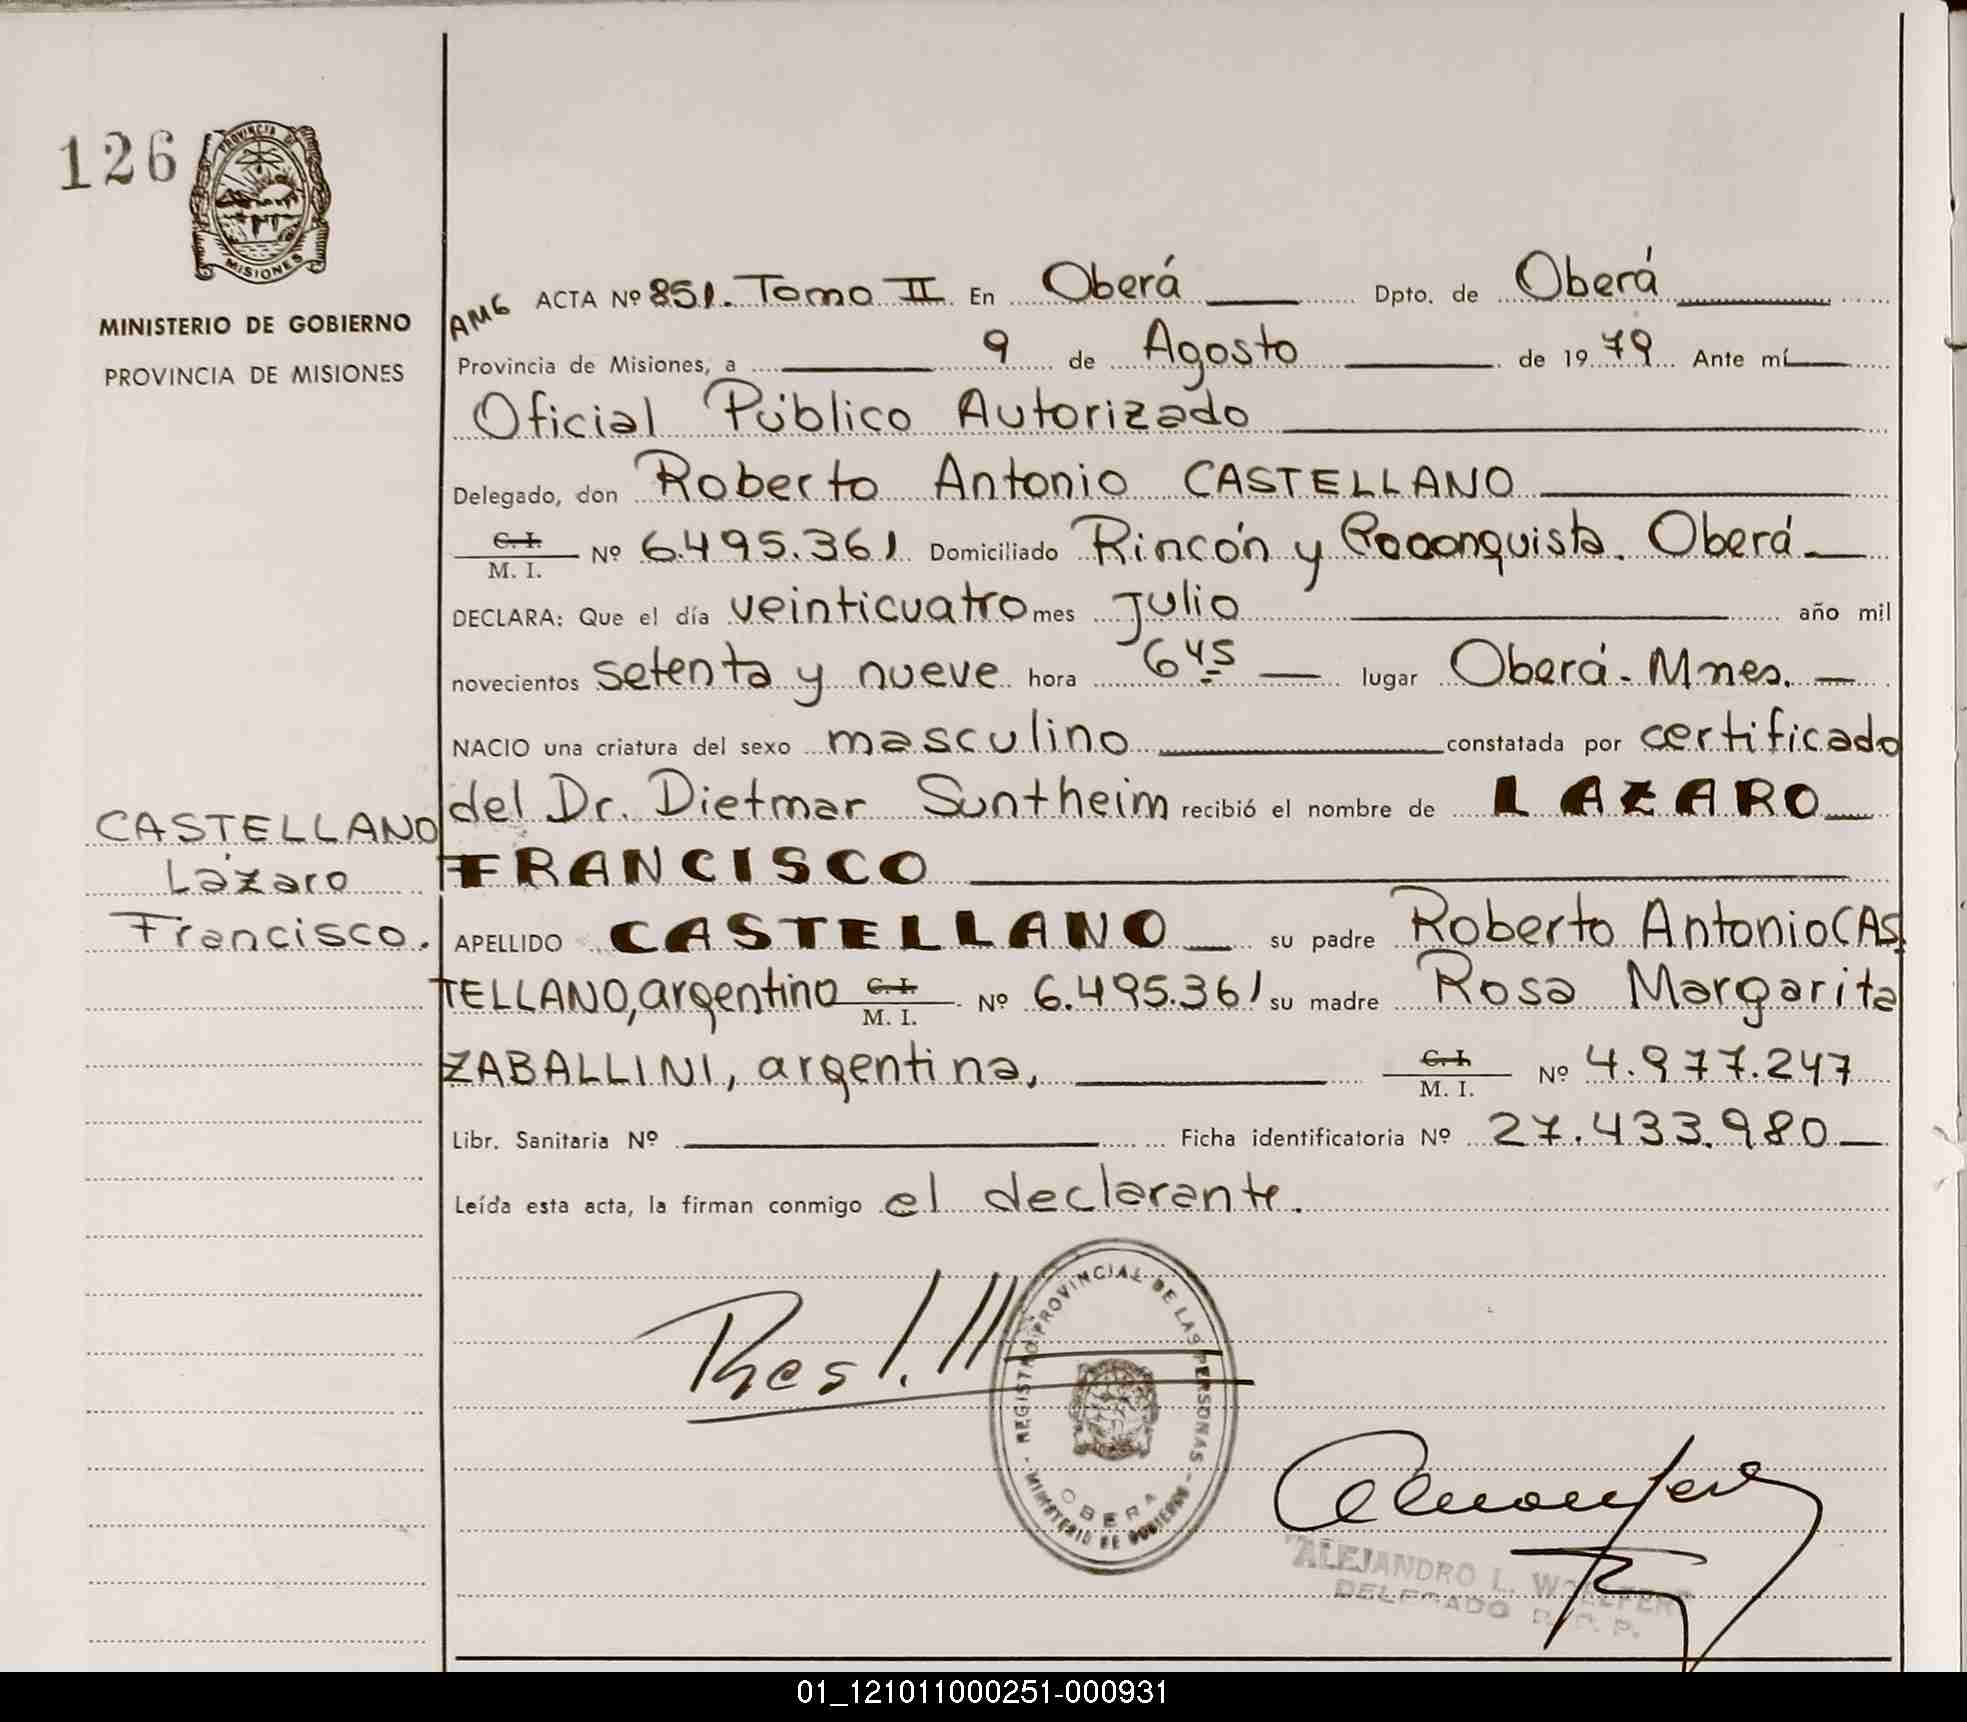 126
PROVINCIA DE
MISIONES
MINISTERIO DE GOBIERNO
PROVINCIA DE MISIONES
CASTELLANO
Lázaro
Francisco.
AMG ACTA Nº 851. Tomo II En Oberá Dpto. de Oberá
Provincia de Misiones, a 9 de Agosto de 1979 Ante mí
Oficial Público Autorizado
Delegado, don Roberto Antonio CASTELLANO
C. I. / M. I. Nº 6.495.361 Domiciliado Rincón y Reconquista. Oberá
DECLARA: Que el día veinticuatro mes julio año mil
novecientos setenta y nueve hora 6 45 lugar Oberá - Mnes.
NACIO una criatura del sexo masculino constatada por certificado
del Dr. Dietmar Suntheim recibió el nombre de LAZARO
FRANCISCO
APELLIDO CASTELLANO su padre Roberto Antonio CAS
TELLANO, argentino C. I. / M. I. Nº 6.495.361 su madre Rosa Margarita
ZABALLINI, argentina, C. I. / M. I. Nº 4.977.247
Libr. Sanitaria Nº Ficha identificatoria Nº 27.433.980
Leída esta acta, la firman conmigo el declarante.
REGISTRO PROVINCIAL DE LAS PERSONAS
MINISTERIO DE GOBIERNO
OBERA
ALEJANDRO L.
DELEGADO R. P. P.
01_121011000251-000931